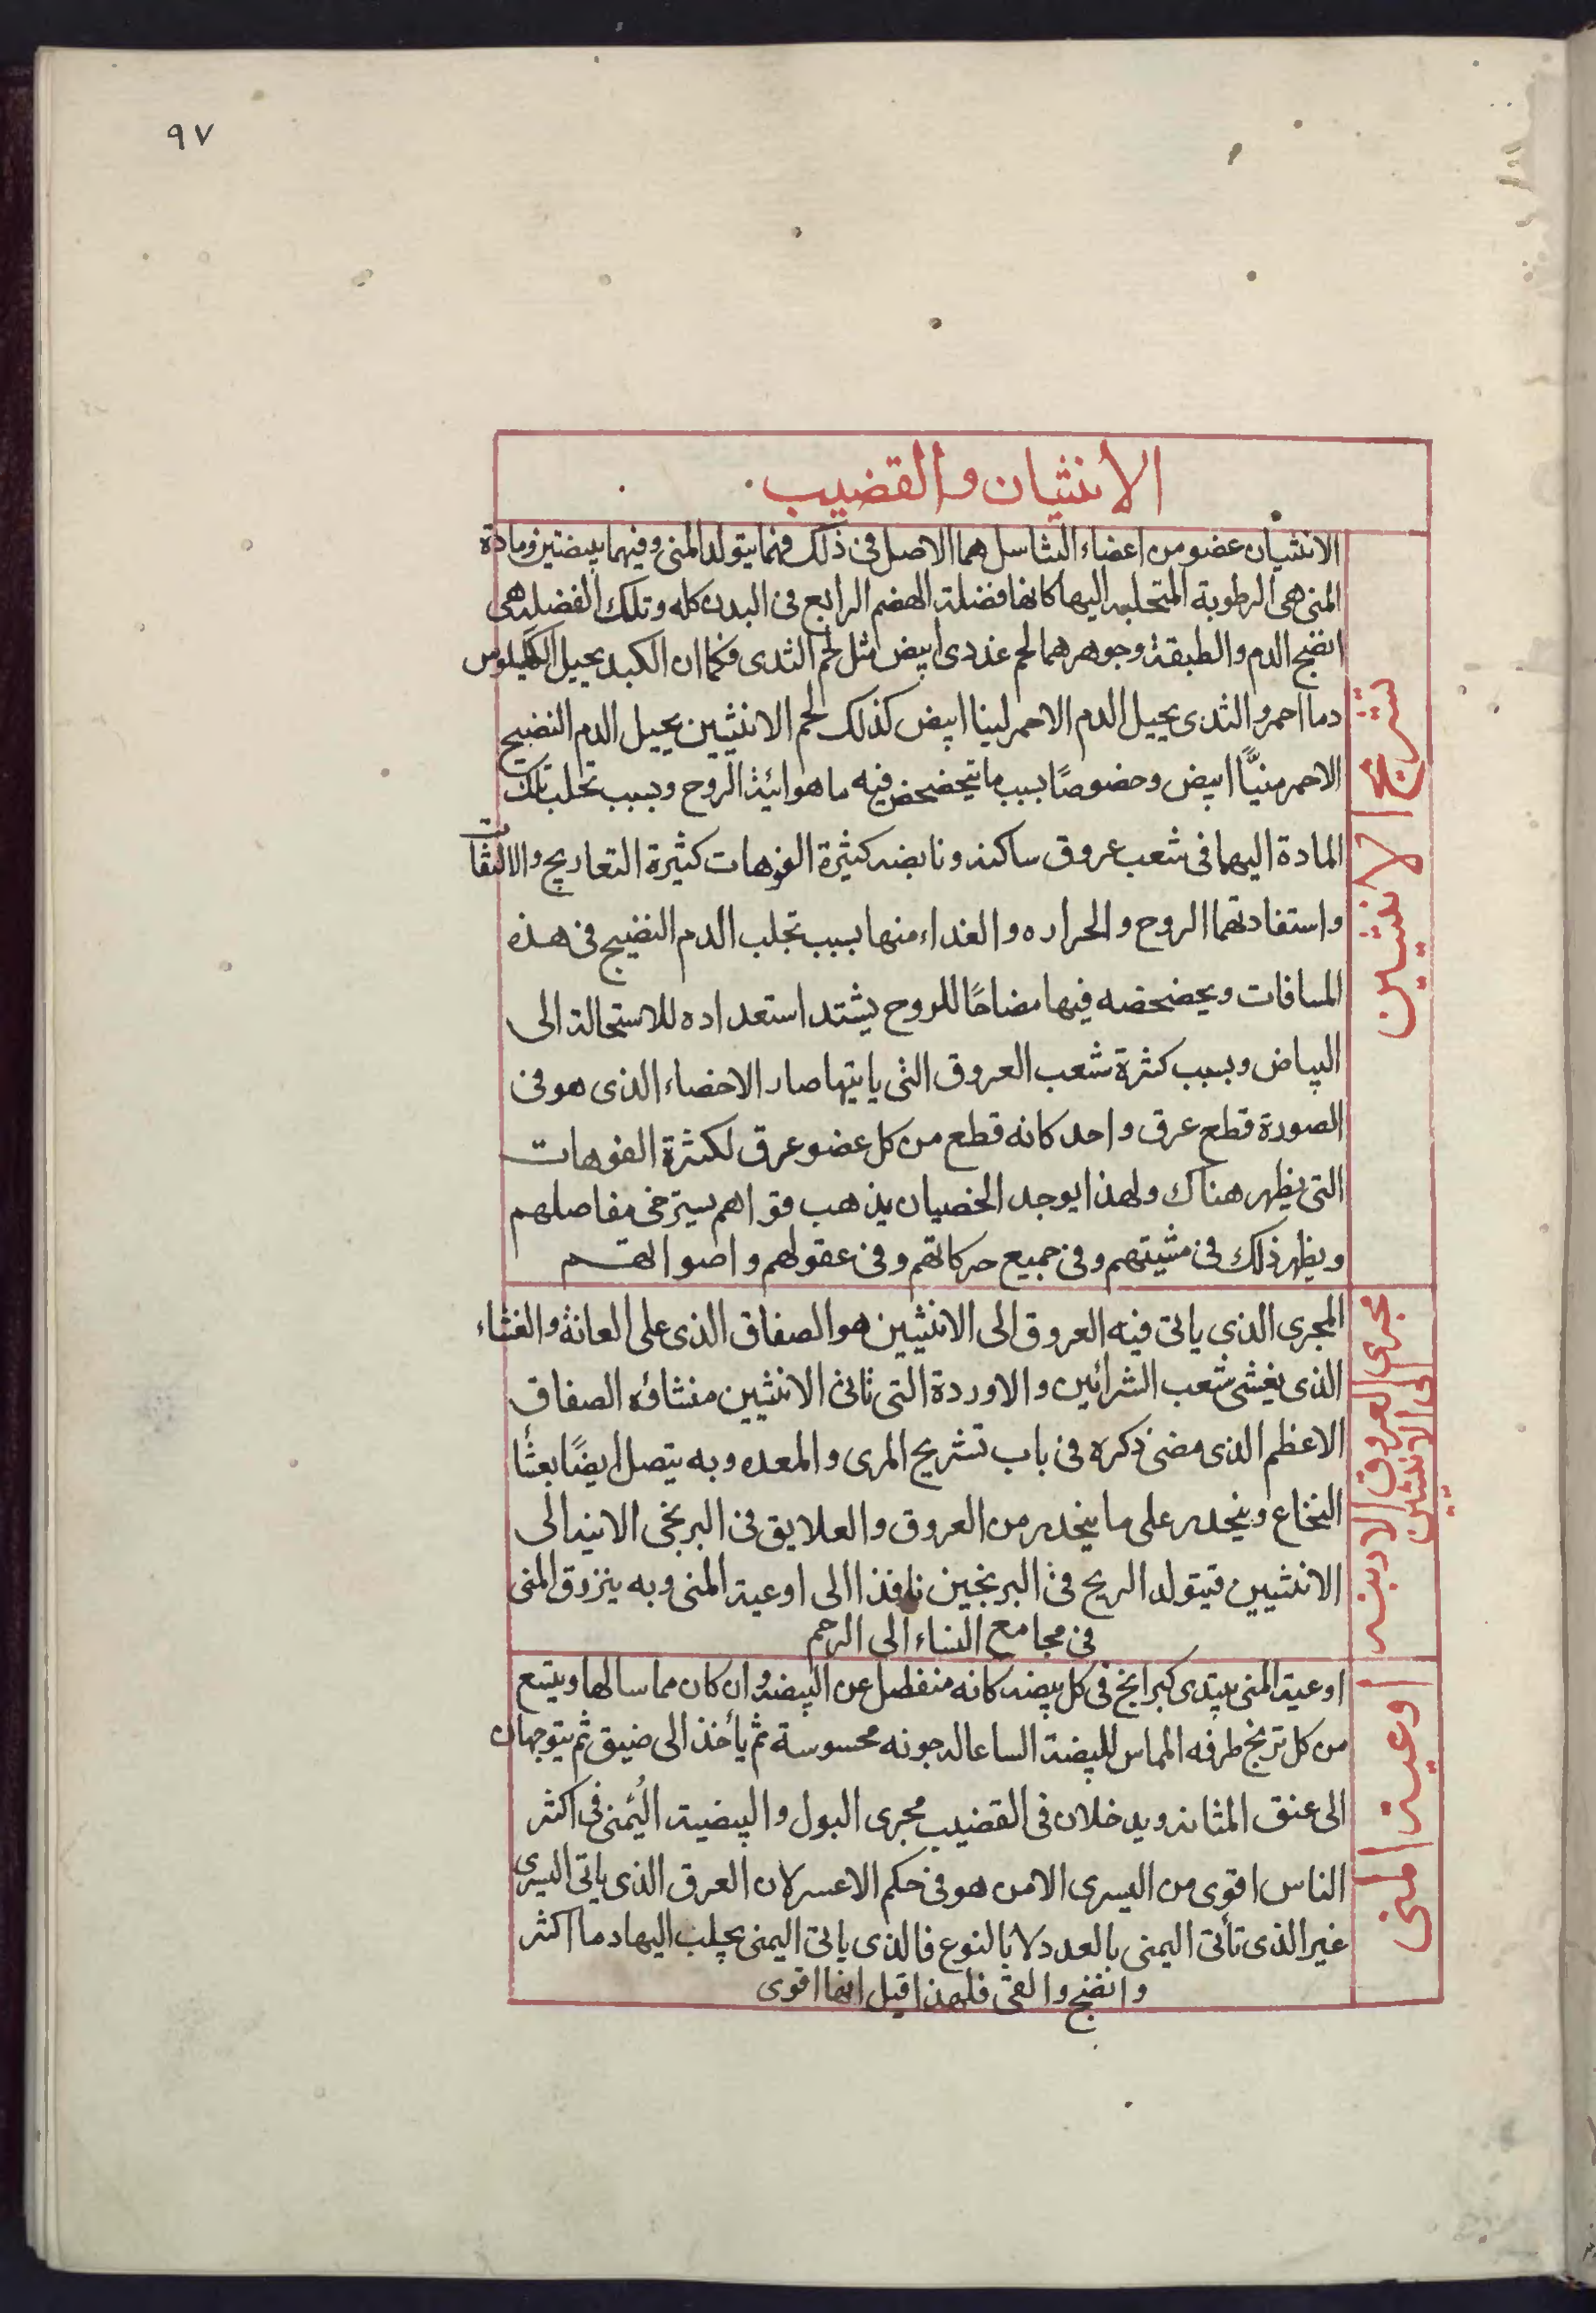 ٩٧
الانثيان والقضيب
تشريح الانثيين
الانثيان عضو من اعضاء التناسل هما الاصل فى ذلك فهما يتولد المنى وفيهما بيضتين ومادة
المنى هى الرطوبة المتحلبه اليها كانها فضلة الهضم الرابع فى البدن كله وتلك الفضله هى
انضج الدم والطبقة وجوهرهما لحم غددى ابيض مثل لحم الثدى فكما ان الكبد يحيل الكيلوس
دما احمر والثدى يحيل الدم الاحمر لبنا ابيض كذلك لحم الانثيين يحيل الدم النضيج
الاحمر منيًّا ابيض وخصوصًا بسبب ما يتخضخض فيه ما هوائية الروح وبسبب تحلب تلك
المادة اليهما فى شعب عروق ساكنه ونابضه كثيرة الفوهات كثيرة التعاريج والالتفات
واستفادتهما الروح والحراره والغذاء منها بسبب تجلب الدم النضيج فى هذه
المسافات ويخضخضه فيها مضاحًا للروح يشتد استعداده للاستحالة الى
البياض وبسبب كثرة شعب العروق التى ياتيها صار الاخصاء الذى هو فى
الصورة قطع عرق واحد كانه قطع من كل عضو عرق لكثرة الفوهات
التى يظهر هناك ولهذا يوجد الخصيان يذهب قواهم يسترخى مفاصلهم
ويظهر ذلك فى مشيتهم وفى جميع حركاتهم وفى عقولهم واصواتهم
مجرى العروق الاتيه
الى الانثيين
المجرى الذى ياتى فيه العروق الى الانثيين هو الصفاق الذى على العانة والغشاء
الذى يغشى شعب الشرائين والاوردة التى تاتى الانثيين منشاؤه الصفاق
الاعظم الذى مضى ذكره فى باب تشريح المرى والمعده وبه يتصل ايضًا بغشا
النخاع وينحدر على ما ينحدر من العروق والعلايق فى البربخى الاتيه الى
الانثيين فيتولد الريح فى البربخين نافذا الى اوعية المنى وبه ينزرق المنى
فى مجامع النساء الى الرحم
اوعية المنى
اوعية المنى يبتدى كبرابخ فى كل بيضه كانه منفصل عن البيضة وان كان مماسا لها ويتسع
من كل تربخ طرفه المماس للبيضة اتساعا له جونه محسوسة ثم يأخذ الى ضيق ثم يتوجهان
الى عنق المثانه ويدخلان فى القضيب مجرى البول والبيضية اليُمنى فى اكثر
الناس اقوى من اليسرى الا من هو فى حكم الاعسر لان العرق الذى ياتى اليسرى
غير الذى تأتى اليمنى بالعدد لا بالنوع فالذى ياتى اليمنى يجلب اليها دما اكثر
وانضج والقى فلهذا قيل انها اقوى